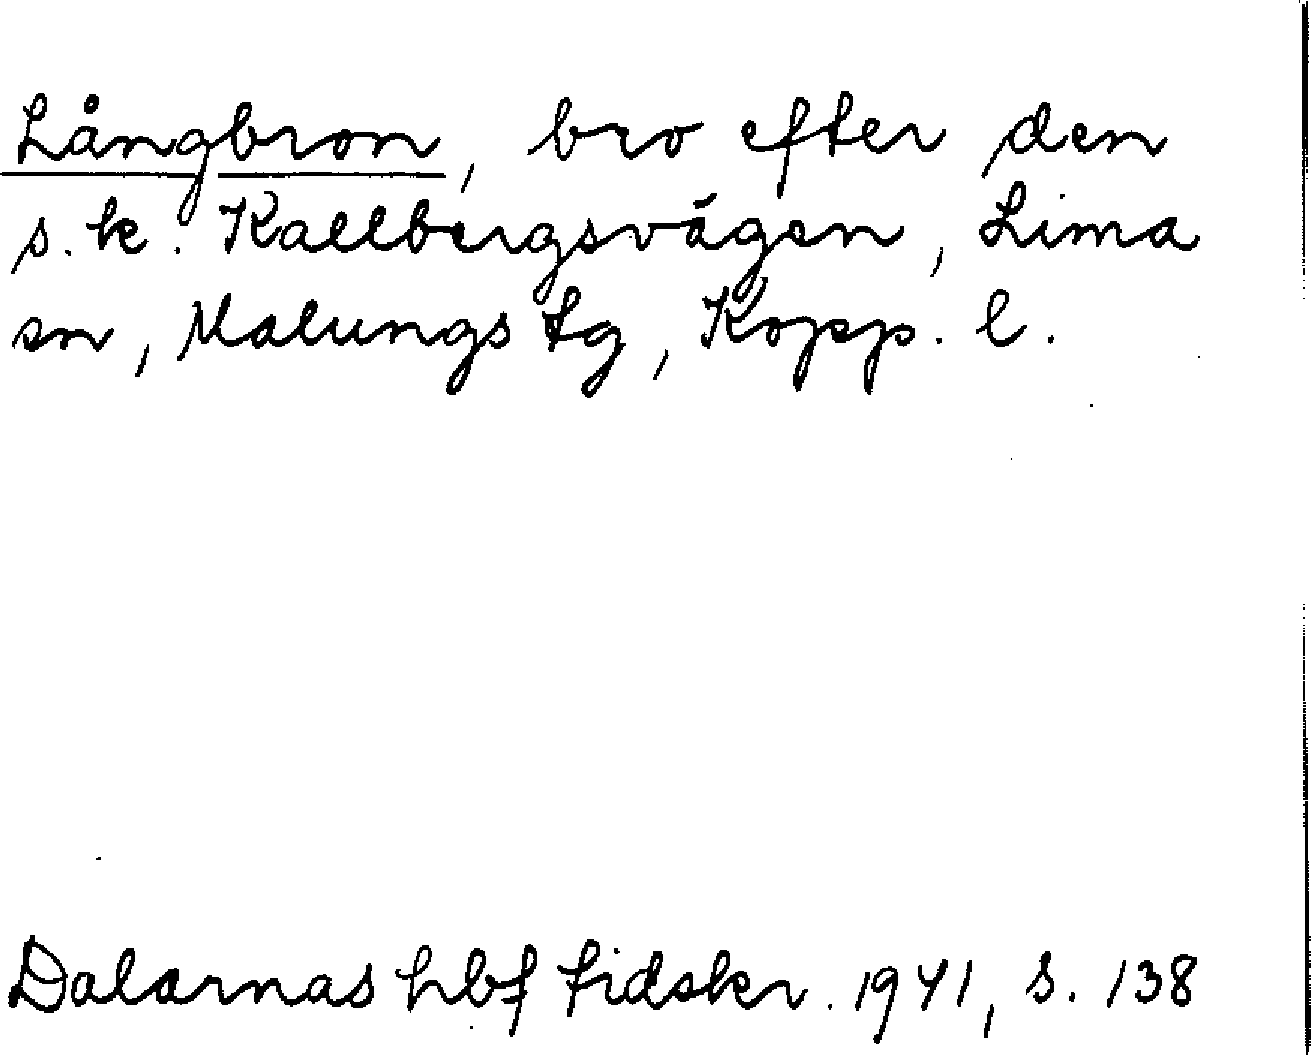 Långbron, bro efter den
s.k. Kallbergsvägen, Lima
sn, Malungs tg, Kopp. l.
Dalarnas hbf tidskr. 1941, s. 138